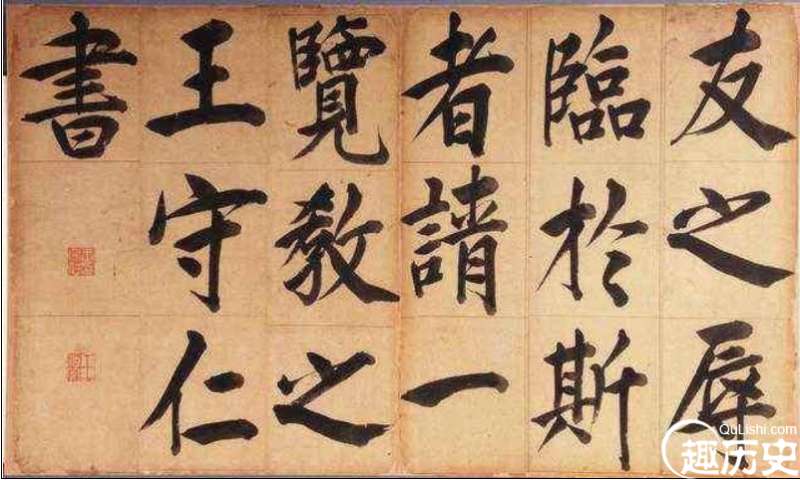 友之辱
臨於斯
者請一
覽教之
王守仁
書
QuLishi.com
趣历史